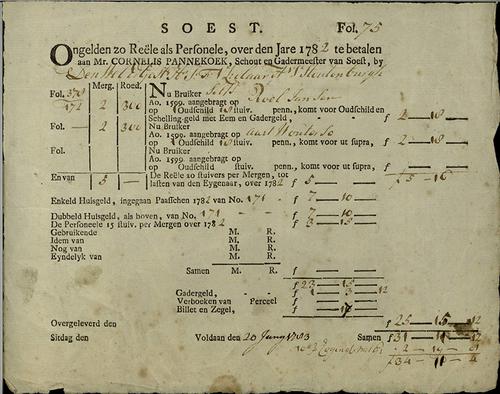 SOEST. Fol. 75
Ongelden zo Reële als Personele, over den Jare 1782 te betalen
aan Mr. CORNELIS PANNEKOEK, Schout en Gadermeester van Soest, by
Merg. Roed.
Fol. Nu Bruiker
172 2 300 Ao. 1599. aangebragt op
op Oudschild stuiv. penn., komt voor Oudschild en
Schelling-geld met Eem en Gadergeld, f 2 — 18 —
Fol. — 2 300 Nu Bruiker
Ao. 1599. aangebragt op
op Oudschild stuiv. penn., komt voor ut supra, f 2 — 18 —
Fol. Nu Bruiker
Ao. 1599. aangebragt op
op Oudschild stuiv. penn., komt voor ut supra, f
En van 5 — De Reële 20 stuivers per Mergen, tot
lasten van den Eygenaar, over 1782 f 5 — — f5 — 16
Enkeld Huisgeld, ingegaan Paasschen 1782 van No. 171 f 7 — 10 —
Dubbeld Huisgeld, als boven, van No. 171 f 7 — 10 —
De Personeele 15 stuiv. per Mergen over 1782 f 3 — 15 —
Gebruikende M. R.
Idem van M. R.
Nog van M. R.
Eyndelyk van M. R.
Samen M. R. f
f 23 — 15 —
Gadergeld, f 1 — 3 — 12
Verboeken van Perceel f
Billet en Zegel, f
Overgeleverd den f 25 — 15 — 12
Sitdag den Voldaan den 20 Juny 1783 Samen f 31 — 11 — 12